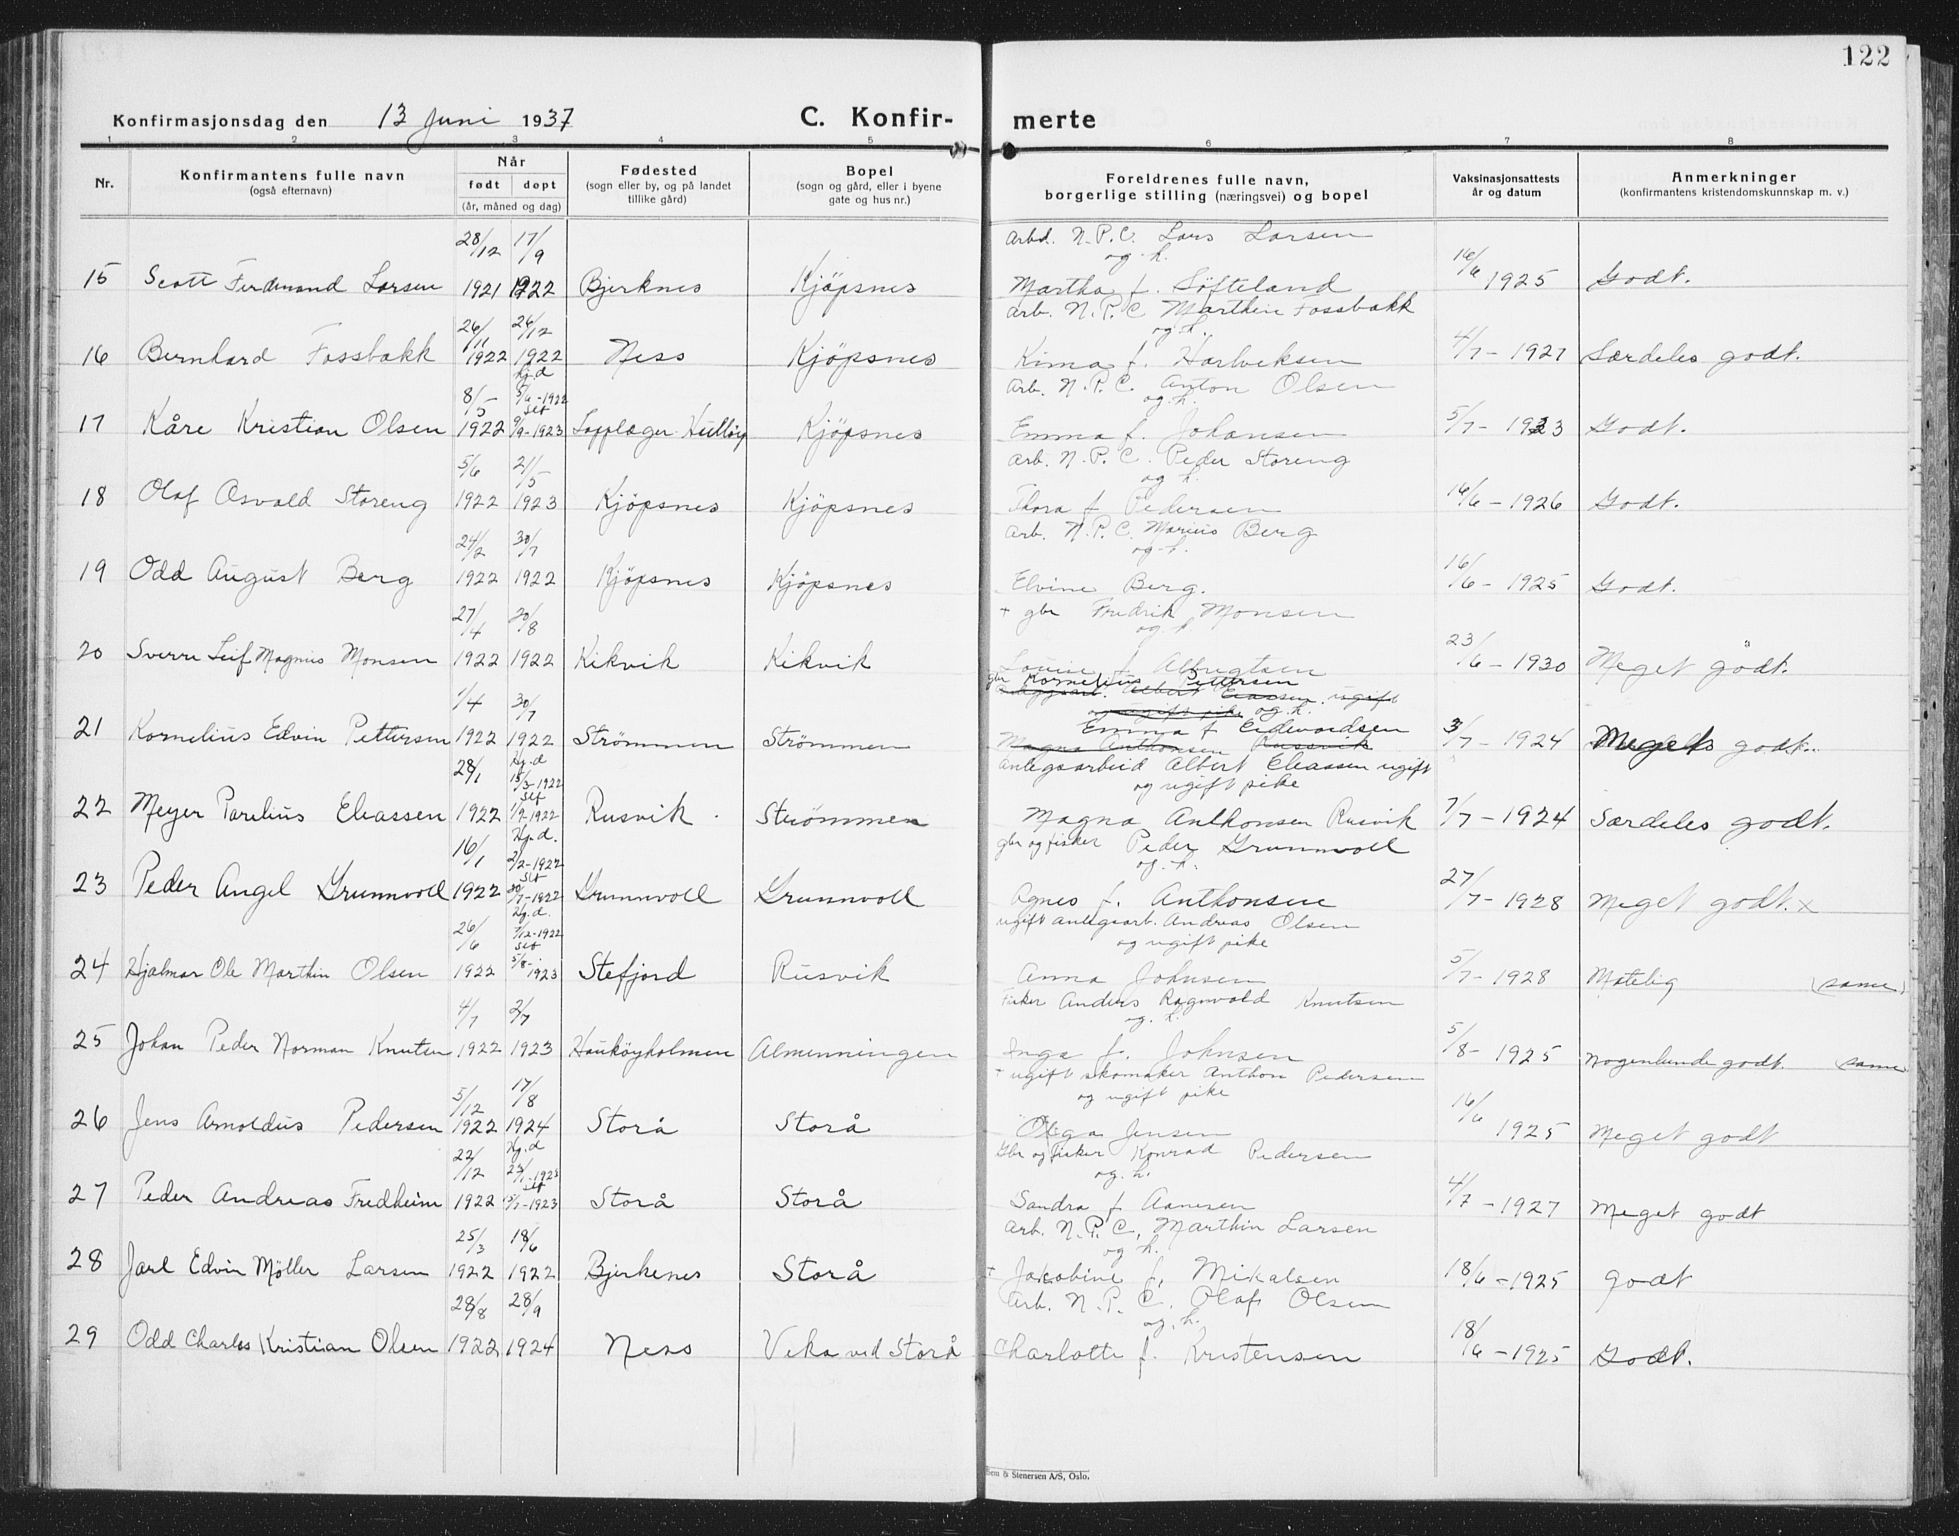 122
Konfirmasjonsdag den 13 Juni 1937
C. Konfir- merte
1 2 3 4 5 6 7 8
Nr.
Konfirmantens fulle navn
(også efternavn)
Når
født døpt
(år, måned og dag)
Fødested
(sogn eller by, og på landet
tillike gård)
Bopel
(sogn og gård, eller i byene
gate og hus nr.)
Foreldrenes fulle navn,
borgerlige stilling (næringsvei) og bopel
Vaksinasjonsattests
år og datum
Anmerkninger
(konfirmantens kristendomskunnskap m. v.)
28/12 17/9 Arbd. N.P.C. Lars Larsen
og h.
15 Scott Ferdinand Larsen 1921 1922 Bjerknes Kjöpsnes Martha f. Söfteland 16/6 1925 Godt.
26/11 26/12 Arb. N.P.C. Marthin Fossbakk
og h.
16 Bernhard Fossbakk 1922 1922 Ness Kjöpsnes Kima f. Hartviksen 4/7 - 1927 Særdeles godt.
8/5 hj.d 5/6-1922 Arb. N.P.C. Anton Olsen
og h.
17 Kåre Kristian Olsen 1922 9/9-1923 Kjöpsnes Emma f. Johansen 5/7 - 1933 Godt.
5/6 21/5 Arb. N.P.C. Peder Storeng
og h.
18 Olaf Osvald Storeng 1922 1923 Kjöpsnes Kjöpsnes Thora f Pedersen 16/6 - 1926 Godt.
24/2 30/7 Arb. N.P.C. Marius Berg
og h.
19 Odd August Berg 1922 1922 Kjöpsnes Kjöpsnes Elvine Berg. 16/6 - 1925 Godt.
27/4 20/8 + gbr Fredrik Monsen
og h.
20 Sverre Leif Magnus Monsen 1922 1922 Kikvik Kikvik Louise f Albrigtsen 23/6 - 1930 Meget godt.
1/4 30/7 gbr Kornelius Pettersen
Albert Eleassen ugift
og ugift pike og h.
Emma f Eidevardsen
21 Kornelius Edvin Pettersen 1922 1922 Strömmen Strömmen Magna Anthonsen Rusvik 3/7 - 1924 Meget godt.
28/1 Hj.d 15/3-1922 Anlegsarbeid Albert Eleassen ugift
og ugift pike
22 Meyer Parelius Eleassen 1922 1/9-1922 Rusvik Strömmen Magna Anthonsen Rusvik 7/7 - 1924 Særdeles godt.
16/1 Hj.d. 2/2-1922 gbr og fisker Peder Grunnvoll
og h.
23 Peder Angel Grunnvoll 1922 30/7-1922 Grunnvoll Grunnvoll Agnes f. Anthonsen 27/7 - 1928 Meget godt. x
26/6 Hj.d. 7/12-1922 ugift anlegsarb. Andreas Olsen
og ugift pike
24 Hjalmar Ole Marthin Olsen 1922 5/8-1923 Stefjord Rusvik Anna Johnsen 5/7 - 1928 Matelig (same)
4/7 2/7 Fisker Anders Ragnvald Knutsen
og h.
25 Johan Peder Norman Knutsen 1922 1923 Hauköyholmen Almenningen Inga f. Johnsen 5/8 - 1925 Nogenlunde godt. (same
5/12 17/8 + ugift skomaker Anthon Pedersen
og ugift pike
26 Jens Arnoldus Pedersen 1922 1924 Storå Storå Olga Jensen 16/6 1925 Meget godt
22/12 Hj.d Gbr og fisker Konrad Pedersen
og h.
27 Peder Andreas Fredheim 1922 Storå Storå Sandra f Aanesen 4/7 - 1927 Meget godt
25/3 18/6 Arb. N.P.C. Marthin Larsen
og h.
28 Jarl Edvin Möller Larsen 1922 1922 Bjerkenes Storå + Jakobine f. Mikalsen 18/6 - 1925 godt
28/8 28/9 Arb. N.P.C. Olaf Olsen
og h.
29 Odd Charles Kristian Olsen 1922 1924 Ness Veka ved Storå Charlotte f. Kristensen 18/6 - 1925 Godt.
& Stenersen A/S, Oslo.